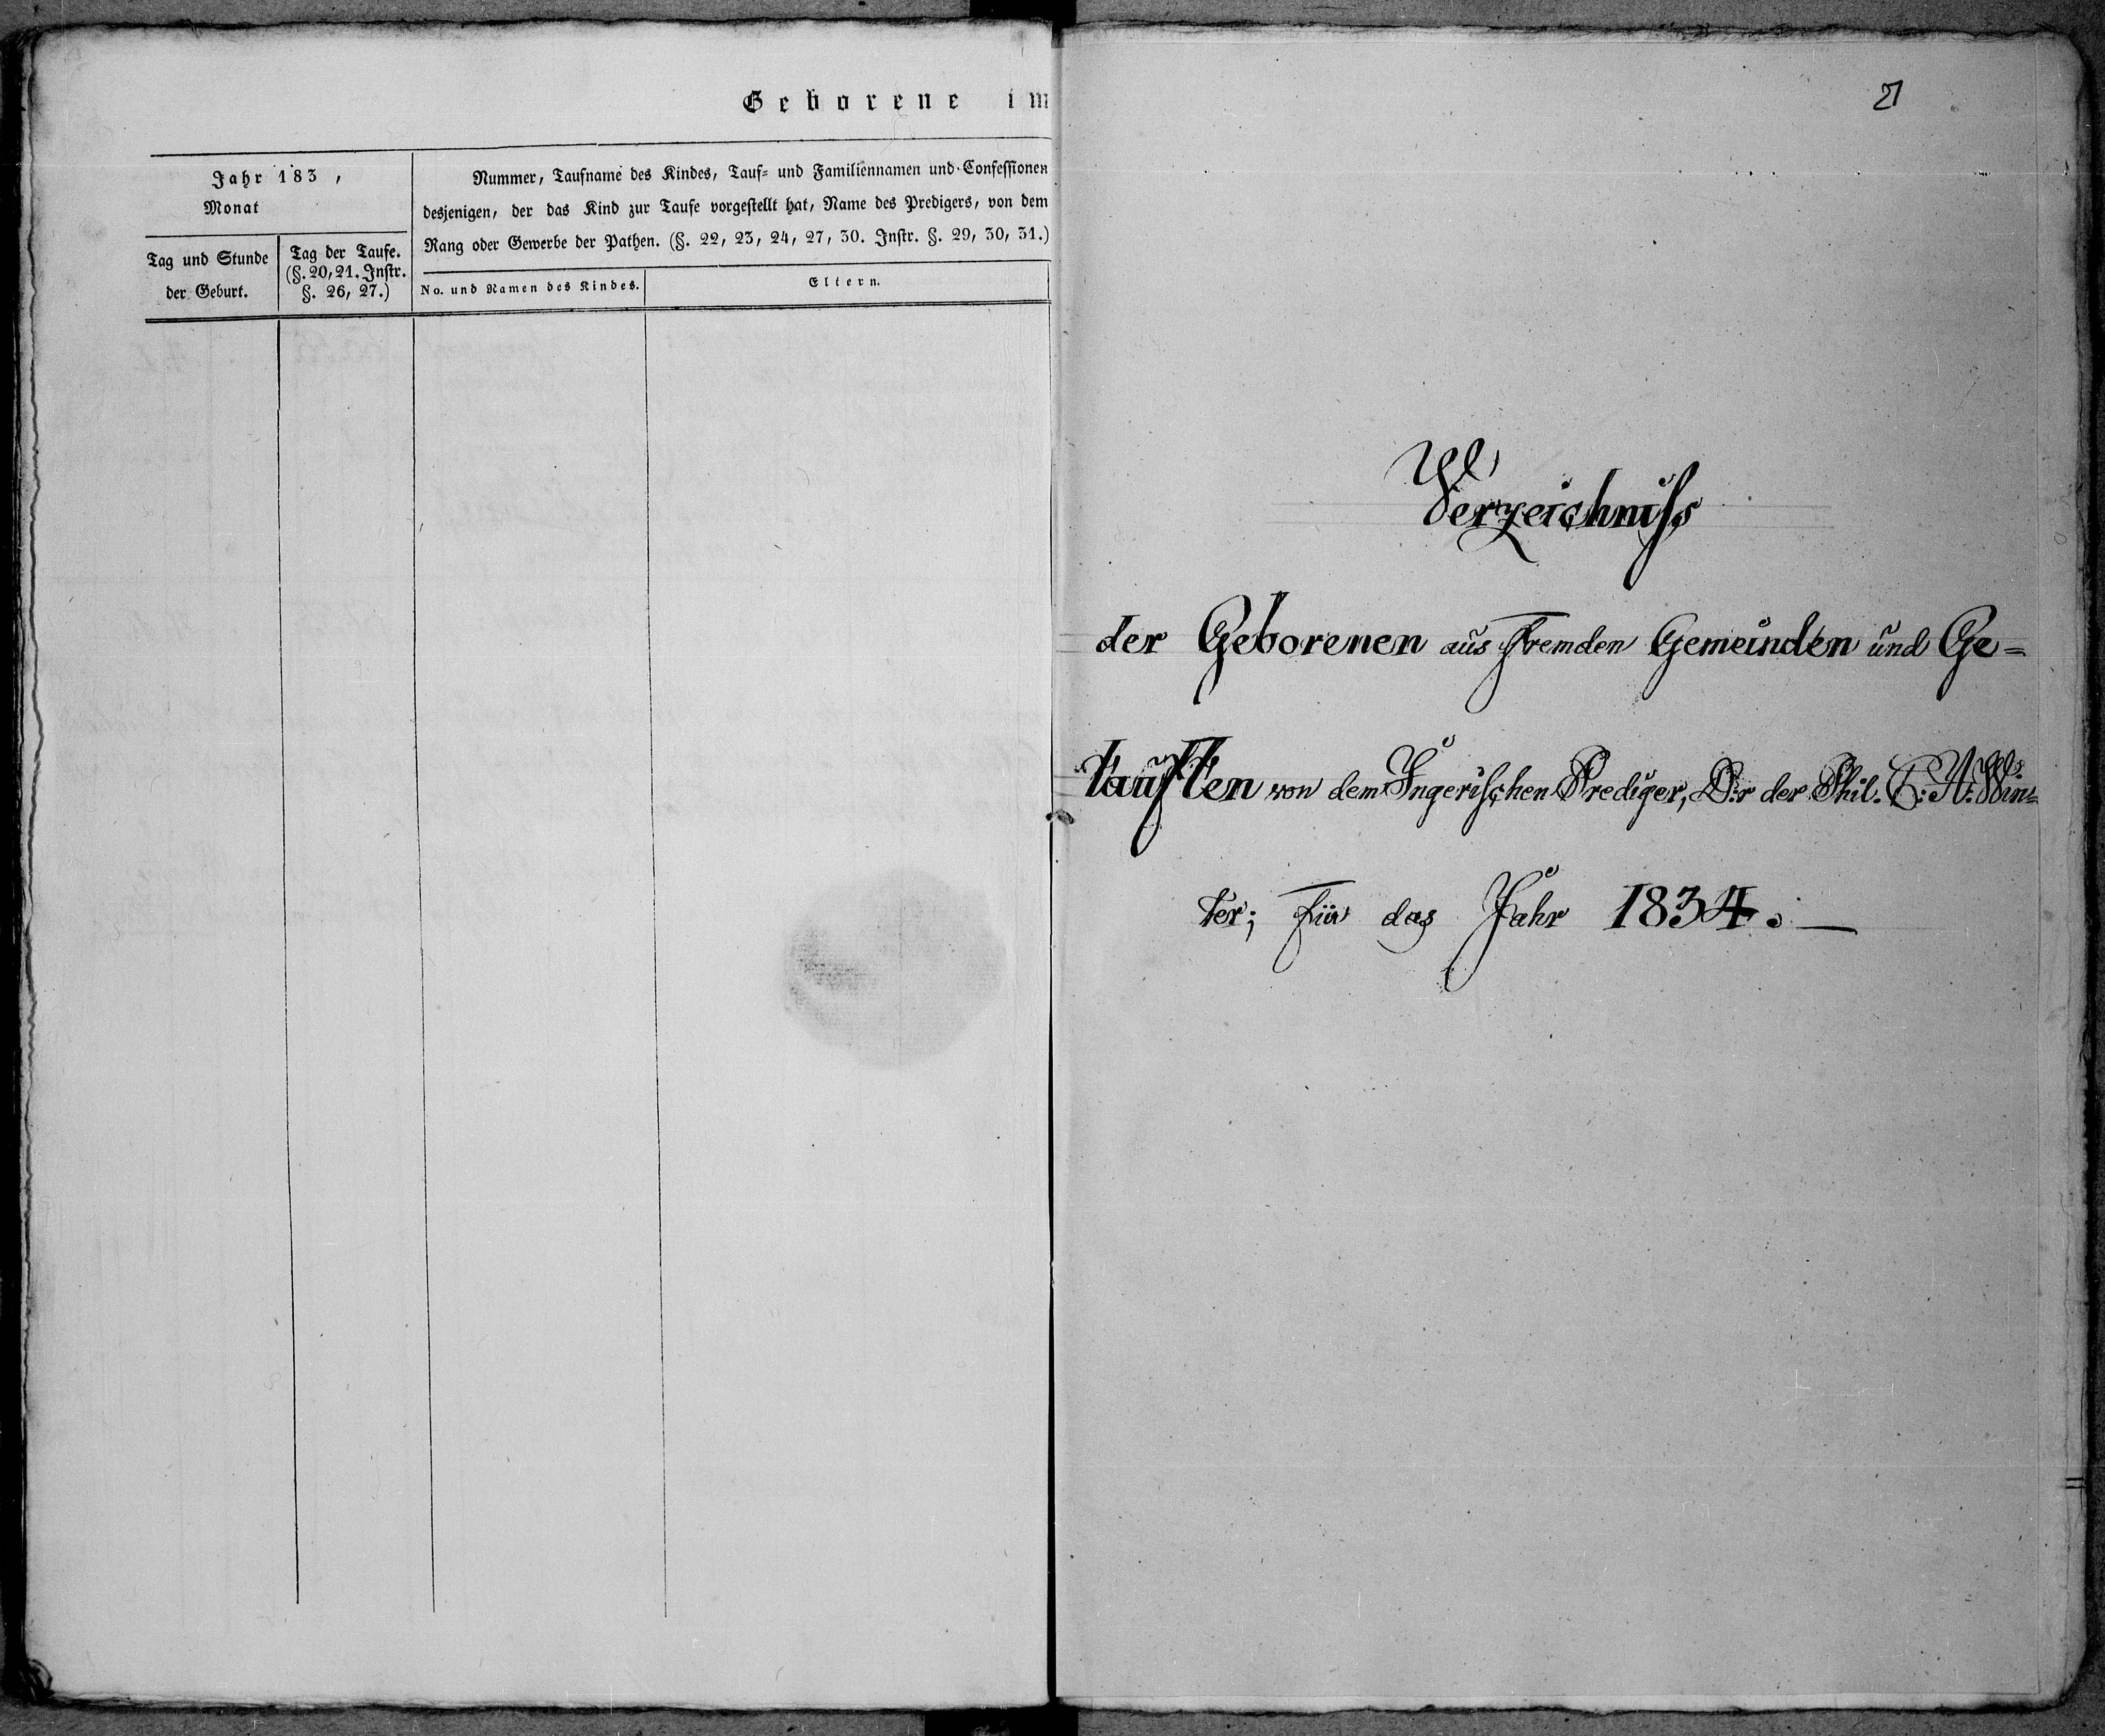 Geborene im
Jahr 183 ,
Monat
Tag und Stunde
der Geburt.
Tag der Taufe.
(§. 20, 21. Instr.
§. 26, 27.)
Nummer, Taufname des Kindes, Tauf- und Familiennamen und Confessionen
desjenigen, der das Kind zur Taufe vorgestellt hat, Name des Predigers, von dem
Rang oder Gewerbe der Pathen. (§. 22, 23, 24, 27, 30. Instr. §. 29, 30, 31.)
No. und Namen des Kindes.
Eltern.
Verzeichniss
der Geborenen aus Fremden Gemeinden und Ge=
tauften von dem Ingerischen Prediger, D:r der Phil. C: A: Win=
ter; für das Jahr 1834. —